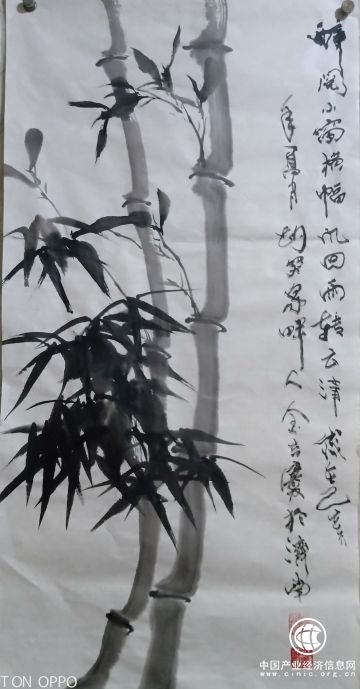 小窗横幅风回雨转云津岁在己亥
年夏月趵突泉畔人金吉庆於济南
中国产业经济信息网
www.cinic.org.cn
T ON OPPO